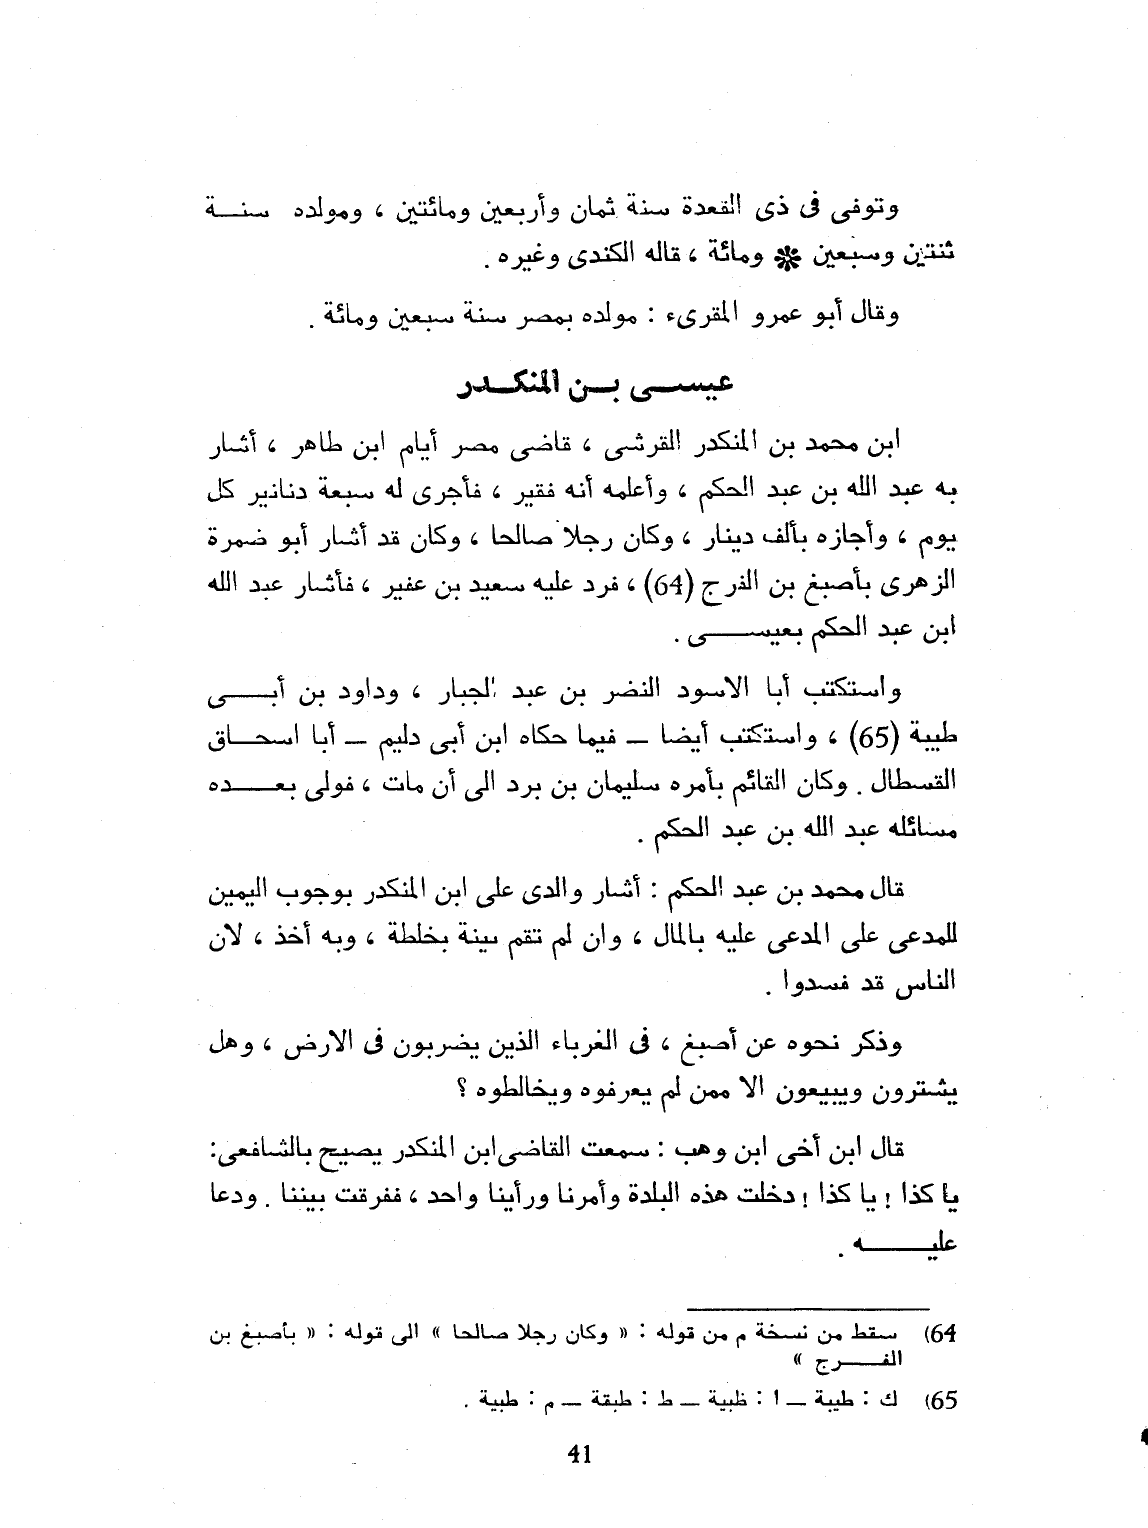 وتوفى فى ذى القعدة سنة ثمان وأربعين ومائتين ، ومولده سنة
ثنتين وسبعين * ومائة ، قاله الكندى وغيره .
وقال أبو عمرو المقرىء : مولده بمصر سنة سبعين ومائة .
عيسى بن المنكدر
ابن محمد بن المنكدر القرشى ، قاضى مصر أيام ابن طاهر ، أشار
به عبد الله بن عبد الحكم ، وأعلمه أنه فقير ، فأجرى له سبعة دنانير كل
يوم ، وأجازه بألف دينار ، وكان رجلا صالحا ، وكان قد أشار أبو ضمرة
الزهرى بأصبغ بن الفرج (64) ، فرد عليه سعيد بن عفير ، فأشار عبد الله
ابن عبد الحكم بعيسى .
واستكتب أبا الاسود النضر بن عبد الجبار ، وداود بن أبى
طيبة (65) ، واستكتب أيضا ــ فيما حكاه ابن أبى دليم ــ أبا اسحاق
القسطال . وكان القائم بأمره سليمان بن برد الى أن مات ، فولى بعده
مسائله عبد الله بن عبد الحكم .
قال محمد بن عبد الحكم : أشار والدى على ابن المنكدر بوجوب اليمين
للمدعى على المدعى عليه بالمال ، وان لم تقم بينة بخلطة ، وبه أخذ ، لان
الناس قد فسدوا .
وذكر نحوه عن أصبغ ، فى الغرباء الذين يضربون فى الارض ، وهل
يشترون ويبيعون الا ممن لم يعرفوه ويخالطوه ؟
قال ابن أخى ابن وهب : سمعت القاضى ابن المنكدر يصيح بالشافعى:
يا كذا ! يا كذا ! دخلت هذه البلدة وأمرنا ورأينا واحد ، ففرقت بيننا . ودعا
عليه .
64) سقط من نسخة م من قوله : « وكان رجلا صالحا » الى قوله : « بأصبغ بن
الفرج »
65) ك : طيبة ــ ا : ظبية ــ ط : طبقة ــ م : طبية .
41